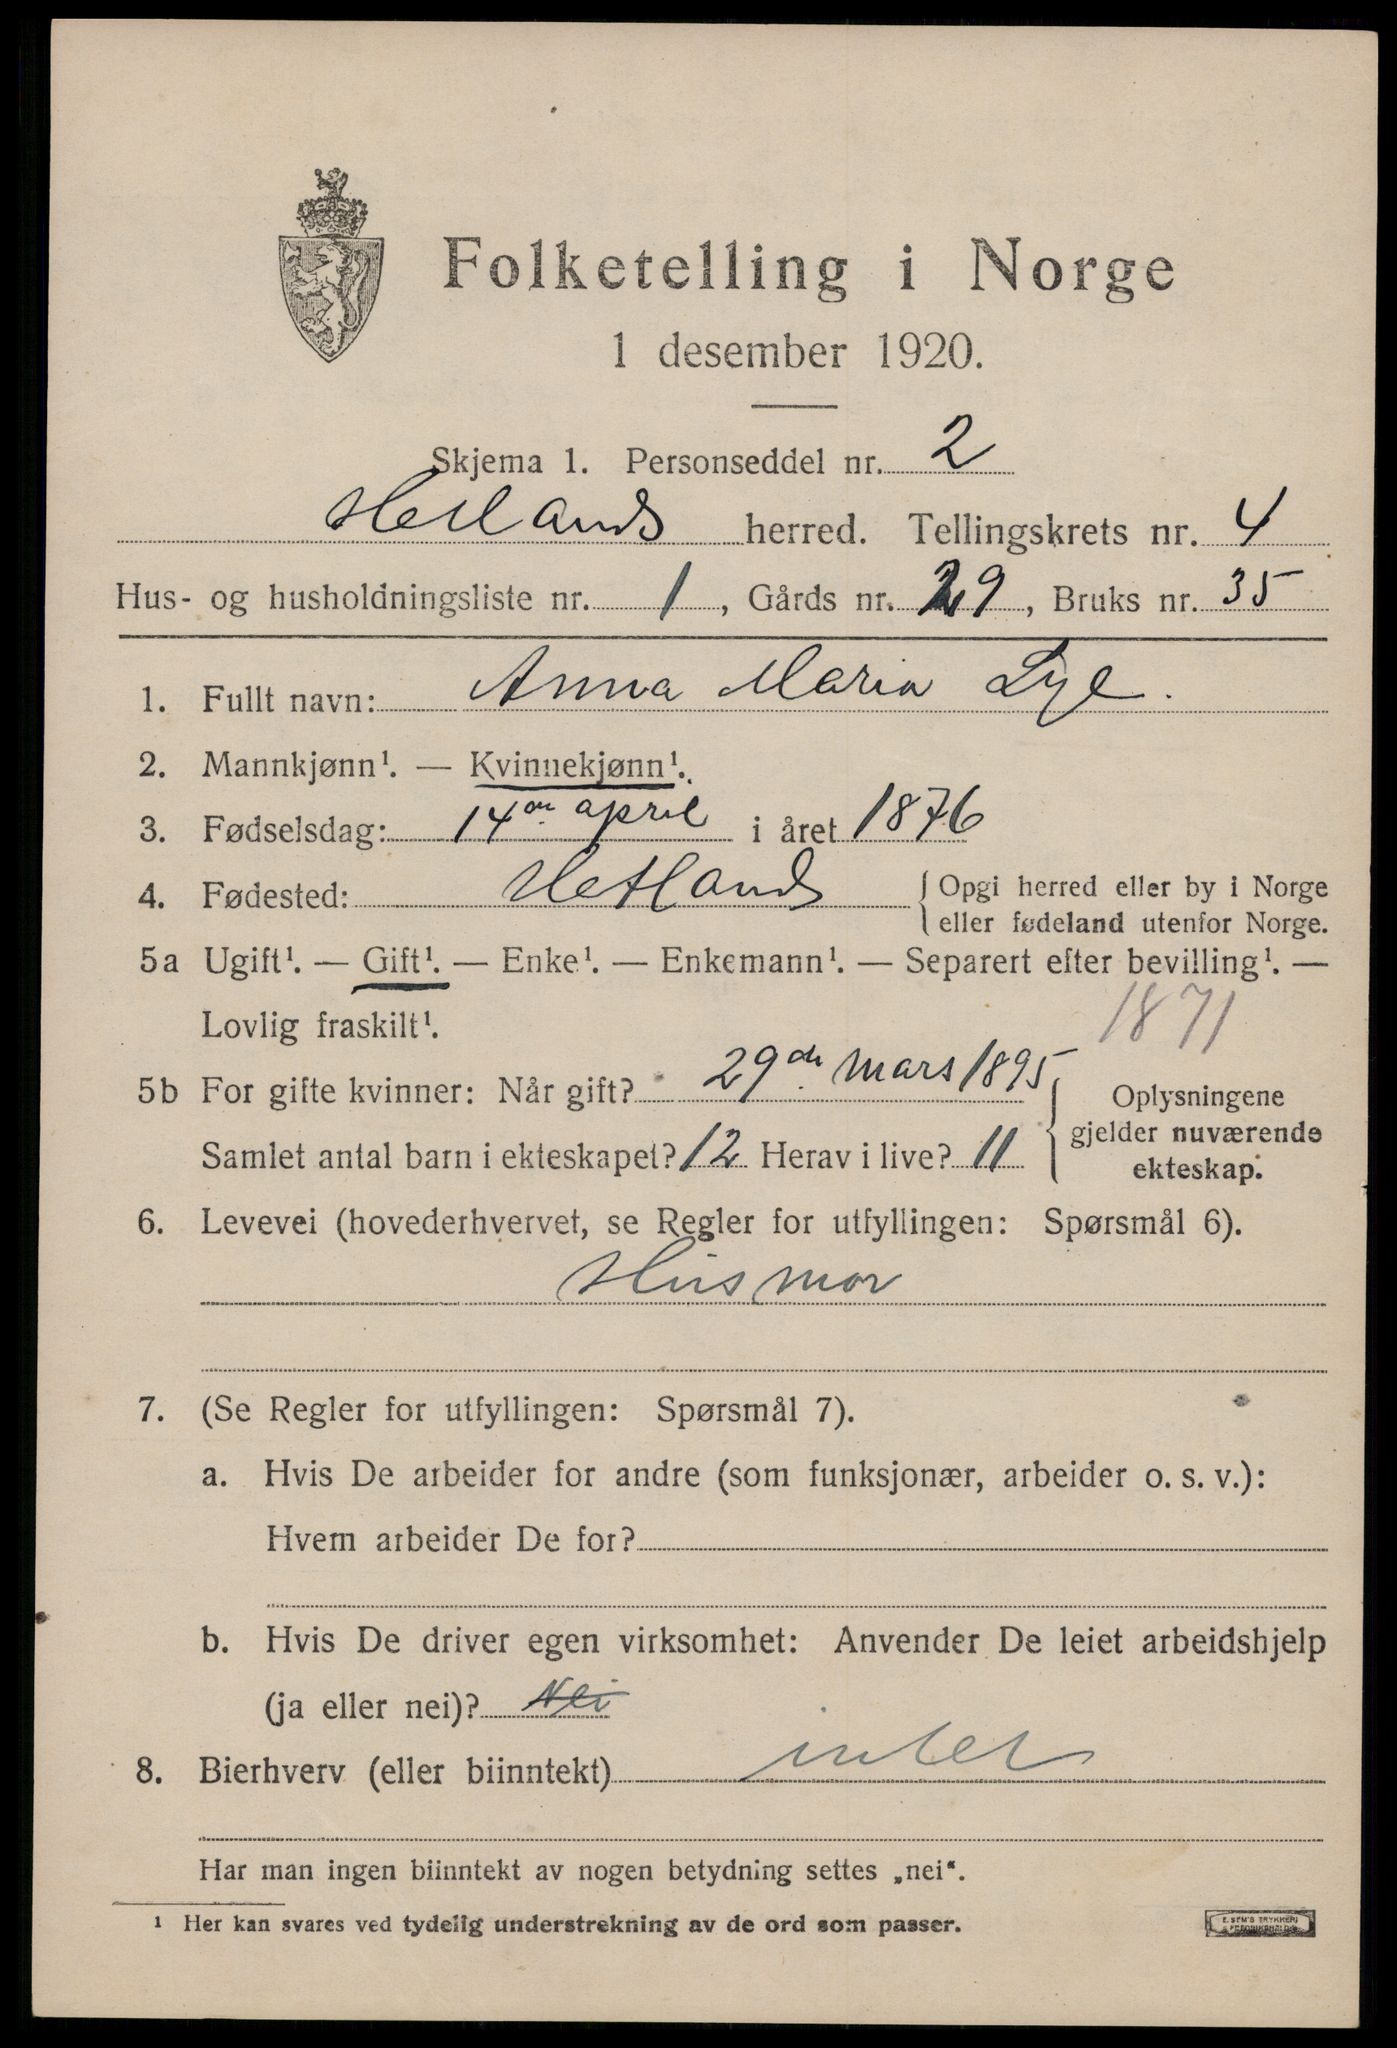 Folketelling i Norge
1 desember 1920.
Skjema 1. Personseddel nr. 2
Hetlands herred. Tellingskrets nr. 4
Hus- og husholdningsliste nr. 1, Gårds nr. 29, Bruks nr. 35
1. Fullt navn: Anna Maria Lye.
2. Mannkjønn¹. — Kvinnekjønn¹.
3. Fødselsdag: 14de april i året 1876
4. Fødested: Hetlands { Opgi herred eller by i Norge
eller fødeland utenfor Norge.
5a Ugift¹. — Gift¹. — Enke¹. — Enkemann¹. — Separert efter bevilling¹. —
Lovlig fraskilt¹. 1871
5b For gifte kvinner: Når gift? 29de mars 1895
Samlet antal barn i ekteskapet? 12 Herav i live? 11
Oplysningene
gjelder nuværende
ekteskap.
6. Levevei (hovederhvervet, se Regler for utfyllingen: Spørsmål 6).
Husmor
7. (Se Regler for utfyllingen: Spørsmål 7).
a. Hvis De arbeider for andre (som funksjonær, arbeider o. s. v.):
Hvem arbeider De for?
b. Hvis De driver egen virksomhet: Anvender De leiet arbeidshjelp
(ja eller nei)? Nei
8. Bierhverv (eller biinntekt) intet
Har man ingen biinntekt av nogen betydning settes „nei“.
¹ Her kan svares ved tydelig understrekning av de ord som passer.
E. SEM'S TRYKKERI
FREDRIKSHALD